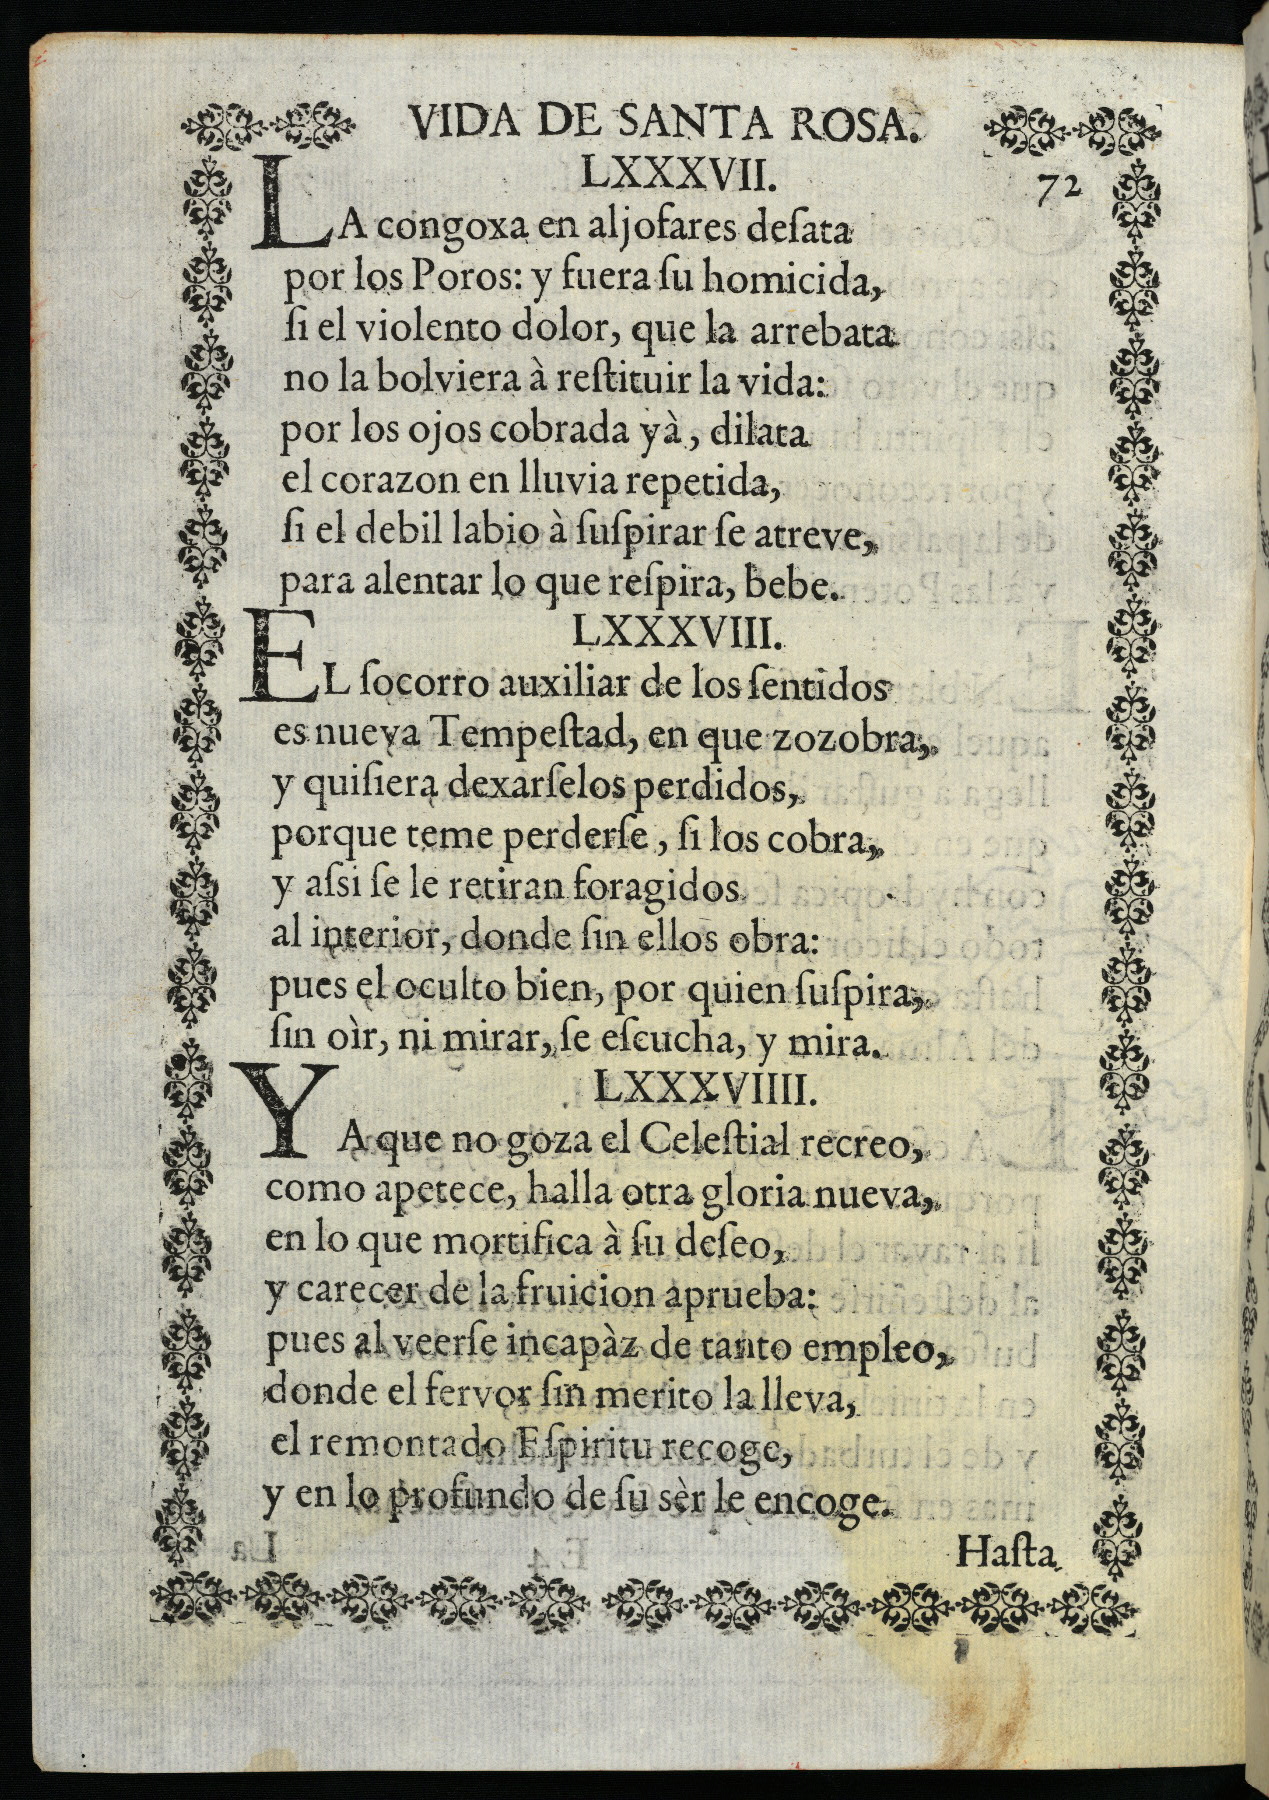 VIDA DE SANTA ROSA.
LXXXVII.
72
LA congoxa en aljofares deſata
por los Poros: y fuera ſu homicida,
ſi el violento dolor, que la arrebata
no la bolviera à reſtituir la vida:
por los ojos cobrada yà, dilata
el corazon en lluvia repetida,
ſi el debil labio à ſuſpirar ſe atreve,
para alentar lo que reſpira, bebe.
LXXXVIII.
EL ſocorro auxiliar de los ſentidos
es nueva Tempeſtad, en que zozobra,
y quiſiera dexarſelos perdidos,
porque teme perderſe, ſi los cobra,
y aſsi ſe le retiran foragidos
al interior, donde ſin ellos obra:
pues el oculto bien, por quien ſuſpira,
ſin oìr, ni mirar, ſe eſcucha, y mira.
LXXXVIIII.
YA que no goza el Celeſtial recreo,
como apetece, halla otra gloria nueva,
en lo que mortifica à ſu deſeo,
y carecer de la fruicion aprueba:
pues al veerſe incapàz de tanto empleo,
donde el fervor ſin merito la lleva,
el remontado Eſpiritu recoge,
y en lo profundo de ſu sèr le encoge.
Haſta